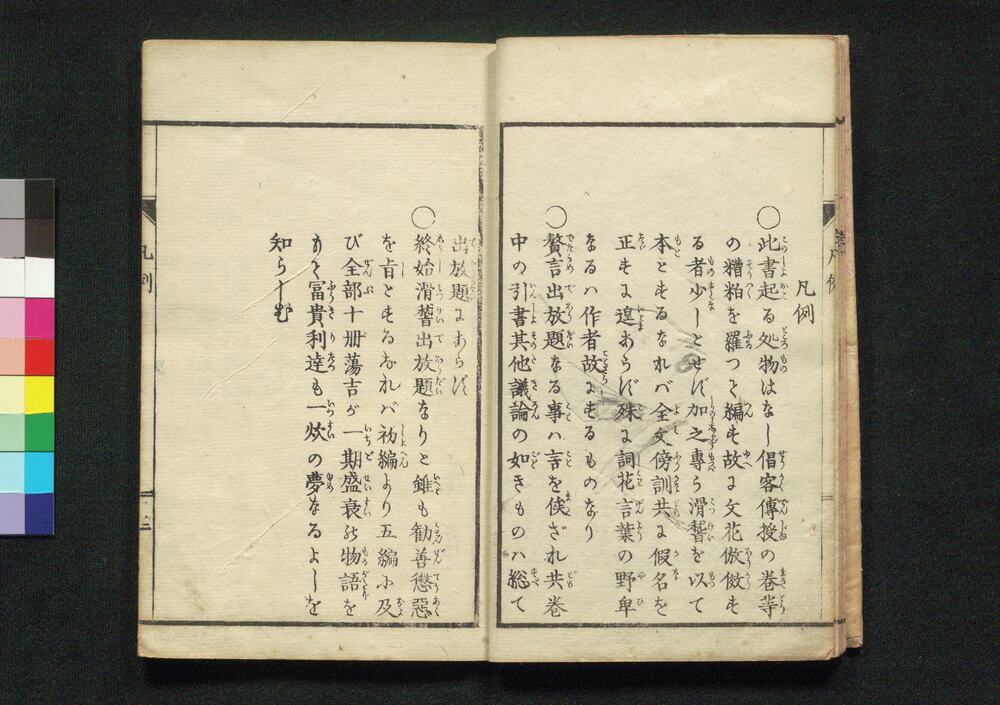 凡例
○此書起る処物はなし倡客傳授の巻等
の糟粕を羅つて編も故に文花倣傚も
る者少しとせず加之專ら滑稽を以て
本ともるなれバ全文傍訓共に假名を
正もに遑あらず殊に詞花言葉の野卑
なるハ作者故にもるものなり
○贅言出放題なる事ハ言を俟ざれ共巻
中の引書其他議論の如きものハ総て
出放題にあらず
○終始滑稽出放題なりと雖も勧善懲惡
を旨ともるなれバ初編より五編に及
び全部十册蕩吉が一期盛衰の物語を
もて冨貴利達も一炊の夢なるよしを
知らしむ
凡例